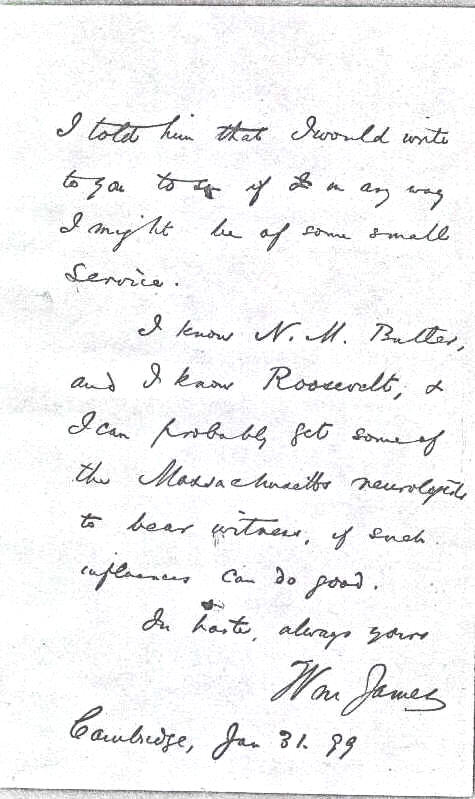 I told him that I would write
to you to see if in any way
I might be of some small
service.
I know N. M. Butler,
and I know Roosevelt, &
I can probably get some of
the Massachusetts neurologists
to bear witness, if such
influences can do good.
In haste, always yours
Wm James
Cambridge, Jan 31. 99